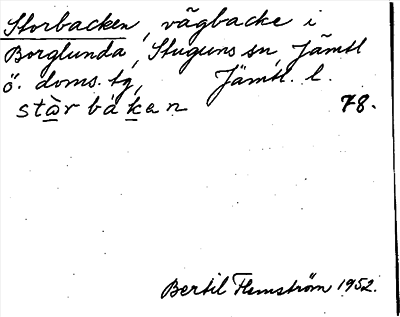 Storbacken, vägbacke i
Borglunda, Stuguns sn, Jämtl
ö. doms. tg, Jämtl. l.
stàr bákan 78.
Bertil Flemström 1952.